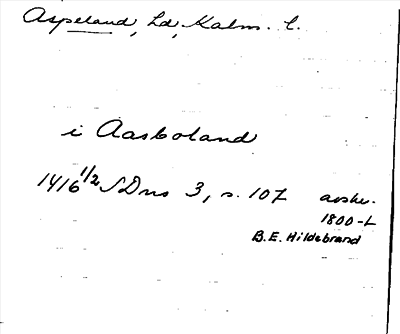 Aspeland, hd, Kalm. l.
i Aasboland
1416 1/2 SDns 3, s. 107 avskr.
1800-t
B.E. Hildebrand